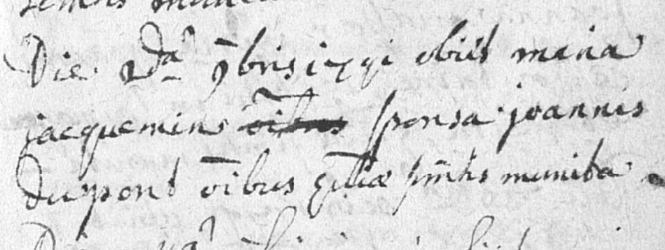 Die 2da 9bris 1791 obiit maria
jacquemins sponsa joannis
dupont oibus eccliae sacrtis munita